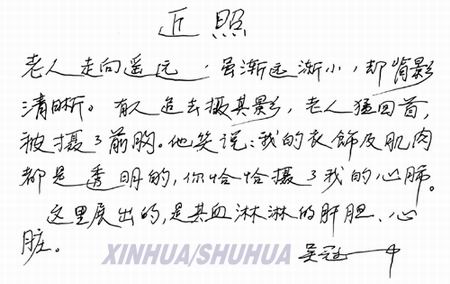 近照
老人走向遥远，虽渐远渐小，却背影
清晰。有人追去摄其影，老人猛回首，
被摄了前胸。他笑说：我的衣饰及肌肉
都是透明的，你恰恰摄了我的心肺。
这里展出的，是其血淋淋的肝胆、心
脏。
XINHUA/SHUHUA
吴冠中